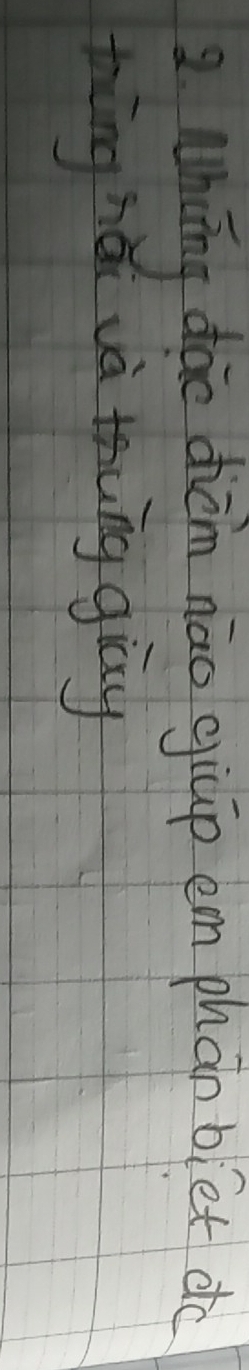 2. Những đặc điểm nào giúp em phân biệt đc
trùng roi và trùng giày